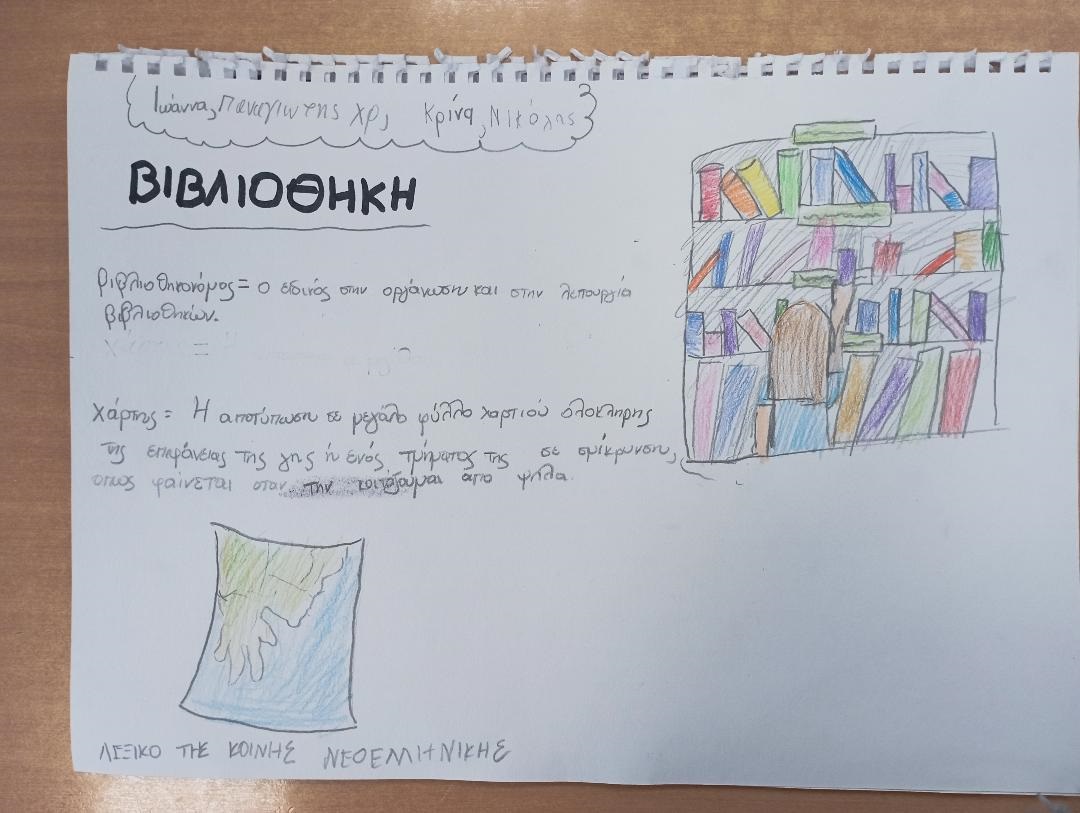 Ιωάννα, Παναγιώτης Χρ, Κρίνα, Νικόλης
ΒΙΒΛΙΟΘΗΚΗ
βιβλιοθηκονόμος = ο ειδικός στην οργάνωση και στην λειτουργία
βιβλιοθηκών.
Χάρτης = Η αποτύπωση σε μεγάλο φύλλο χαρτιού ολόκληρης
της επιφάνειας της γης ή ενός τμήματος της σε σμίκρυνση,
οπως φαίνεται οταν την κοιτάζουμαι απο ψηλα.
ΛΕΞΙΚΟ ΤΗΣ ΚΟΙΝΗΣ ΝΕΟΕΛΛΗΝΙΚΗΣ